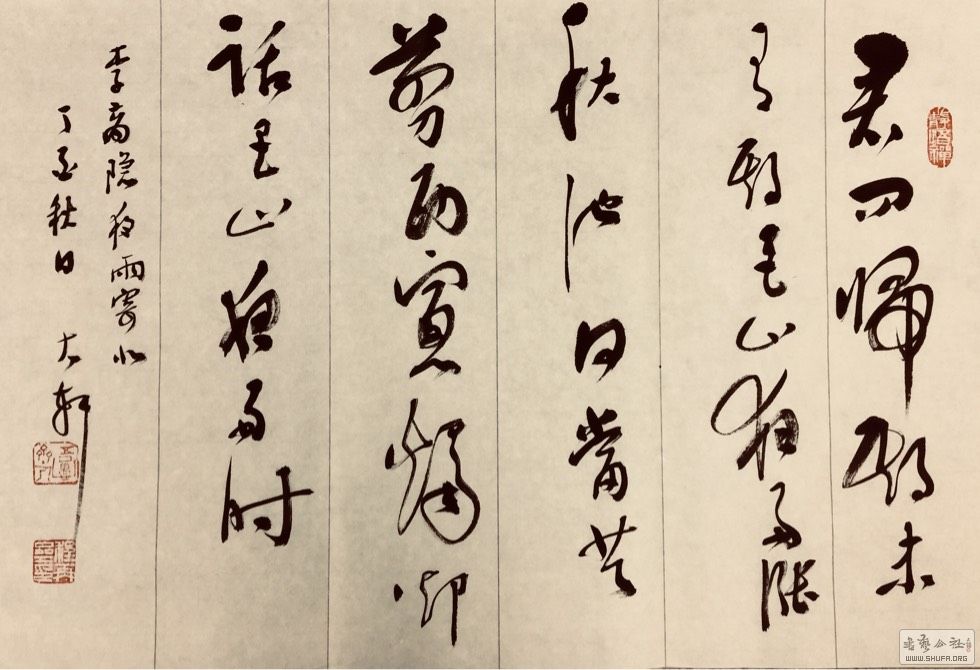 君问歸期未
有期巴山夜雨涨
秋池何當共
剪西窗燭却
話巴山夜雨时
李商隐夜雨寄北
丁酉秋日 大軒
WWW.SHUFA.ORG